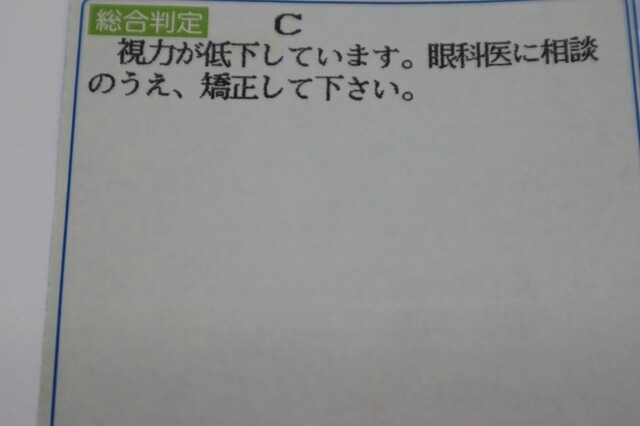 総合判定 C
視力が低下しています。眼科医に相談
のうえ、矯正して下さい。